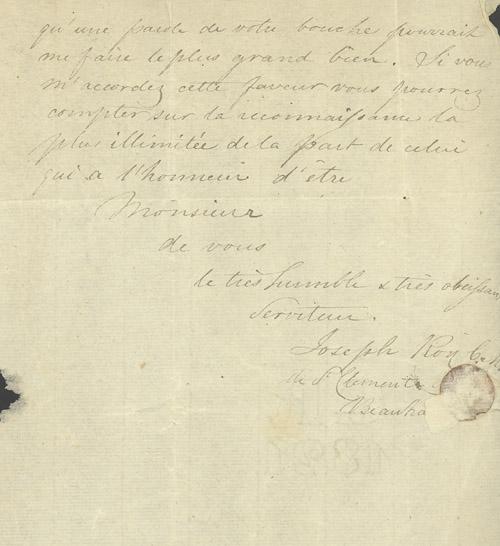 qu'une parole de votre bouche pourrait
me faire le plus grand bien. Si vous
m'accordez cette faveur vous pourrez
compter sur la reconnaissance la
plus illimitée de la part de celui
qui a l'honneur d'être
Monsieur
de vous
le très humble & très obéissan
Serviteur.
Joseph Roy
de St Clement
Beauha